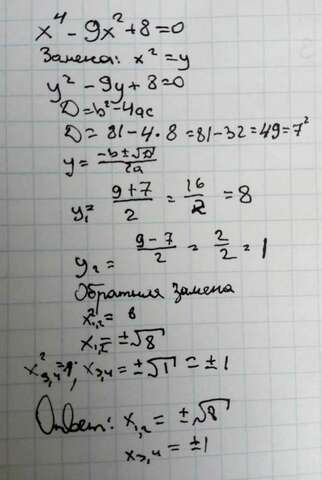 x⁴ - 9x² + 8 = 0
Замена: x² = y
y² - 9y + 8 = 0
D = b² - 4ac
D = 81 - 4 · 8 = 81 - 32 = 49 = 7²
y = (-b ± √D)/2a
y₁ = (9 + 7)/2 = 16/2 = 8
y₂ = (9 - 7)/2 = 2/2 = 1
Обратная замена
x²₁,₂ = 8
x₁,₂ = ±√8
x²₃,₄ = 1; x₃,₄ = ±√1 = ±1
Ответ: x₁,₂ = ±√8
x₃,₄ = ±1